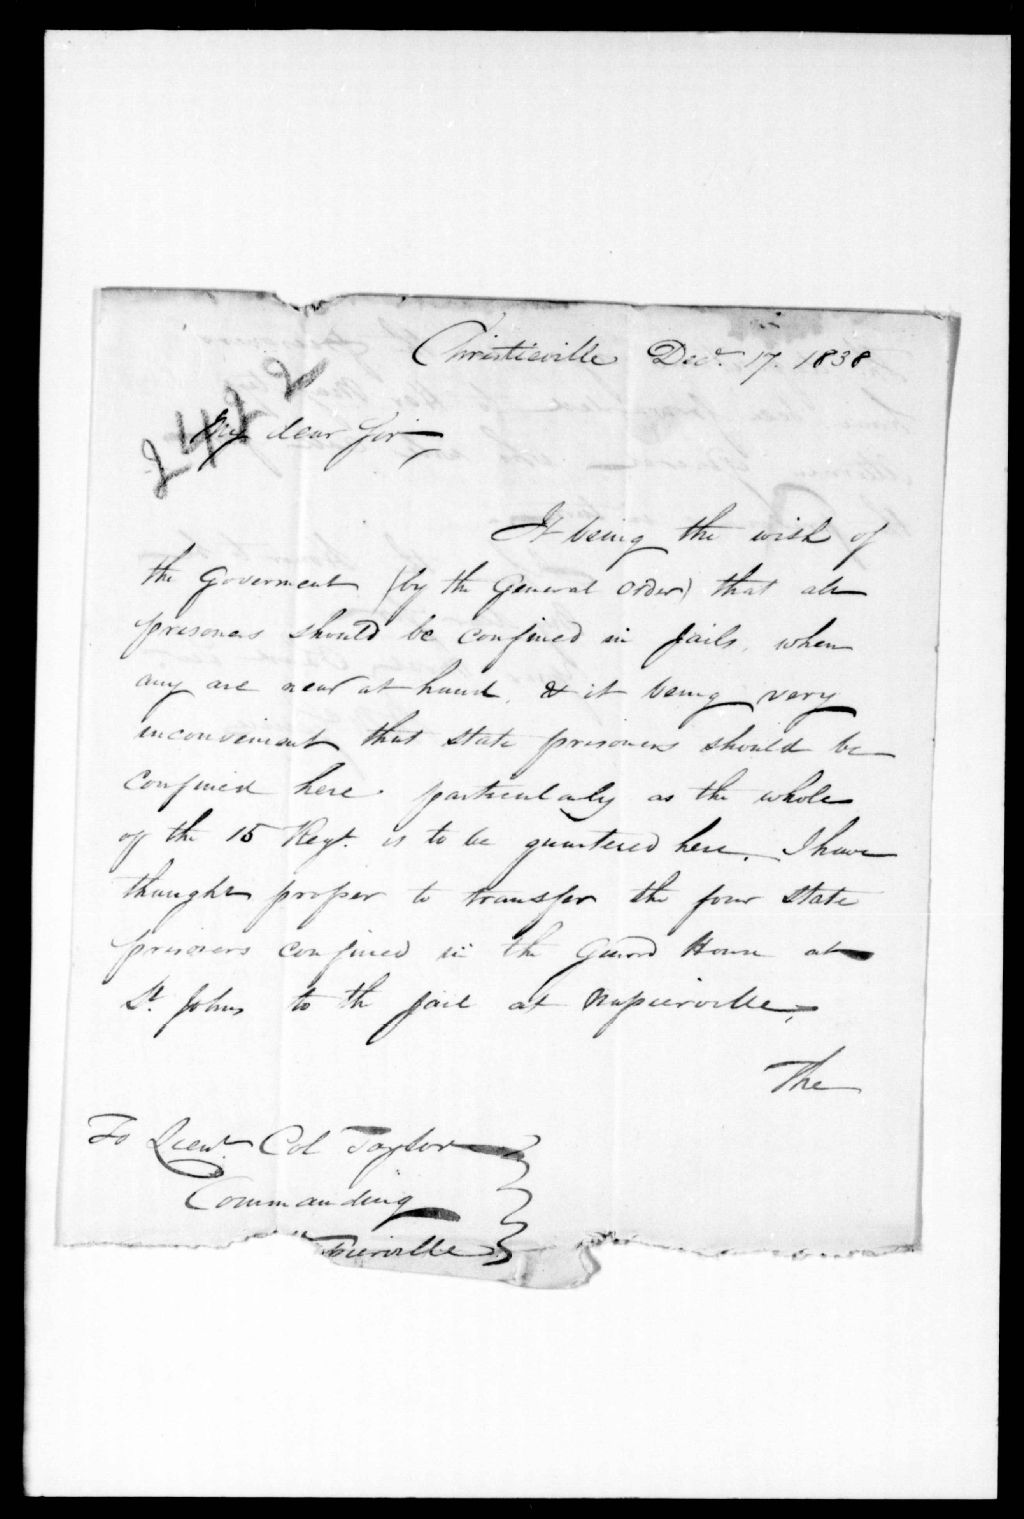 Christieville Decr. 17. 1838
2422
My dear Sir,
It being the wish of
the Goverment (by the General Order) that all
prisoners should be confined in Jails, when
any are near at hand, & it being very
inconvenient that state prisoners should be
confined here particularly as the whole
of the 15 Regt. is to be quartered here. I have
thought proper to transfer the four State
prisoners confined in the Guard House at
St. Johns to the Jail at Napierville,
The
To Lieut. Col Taylor
Commanding
pierville